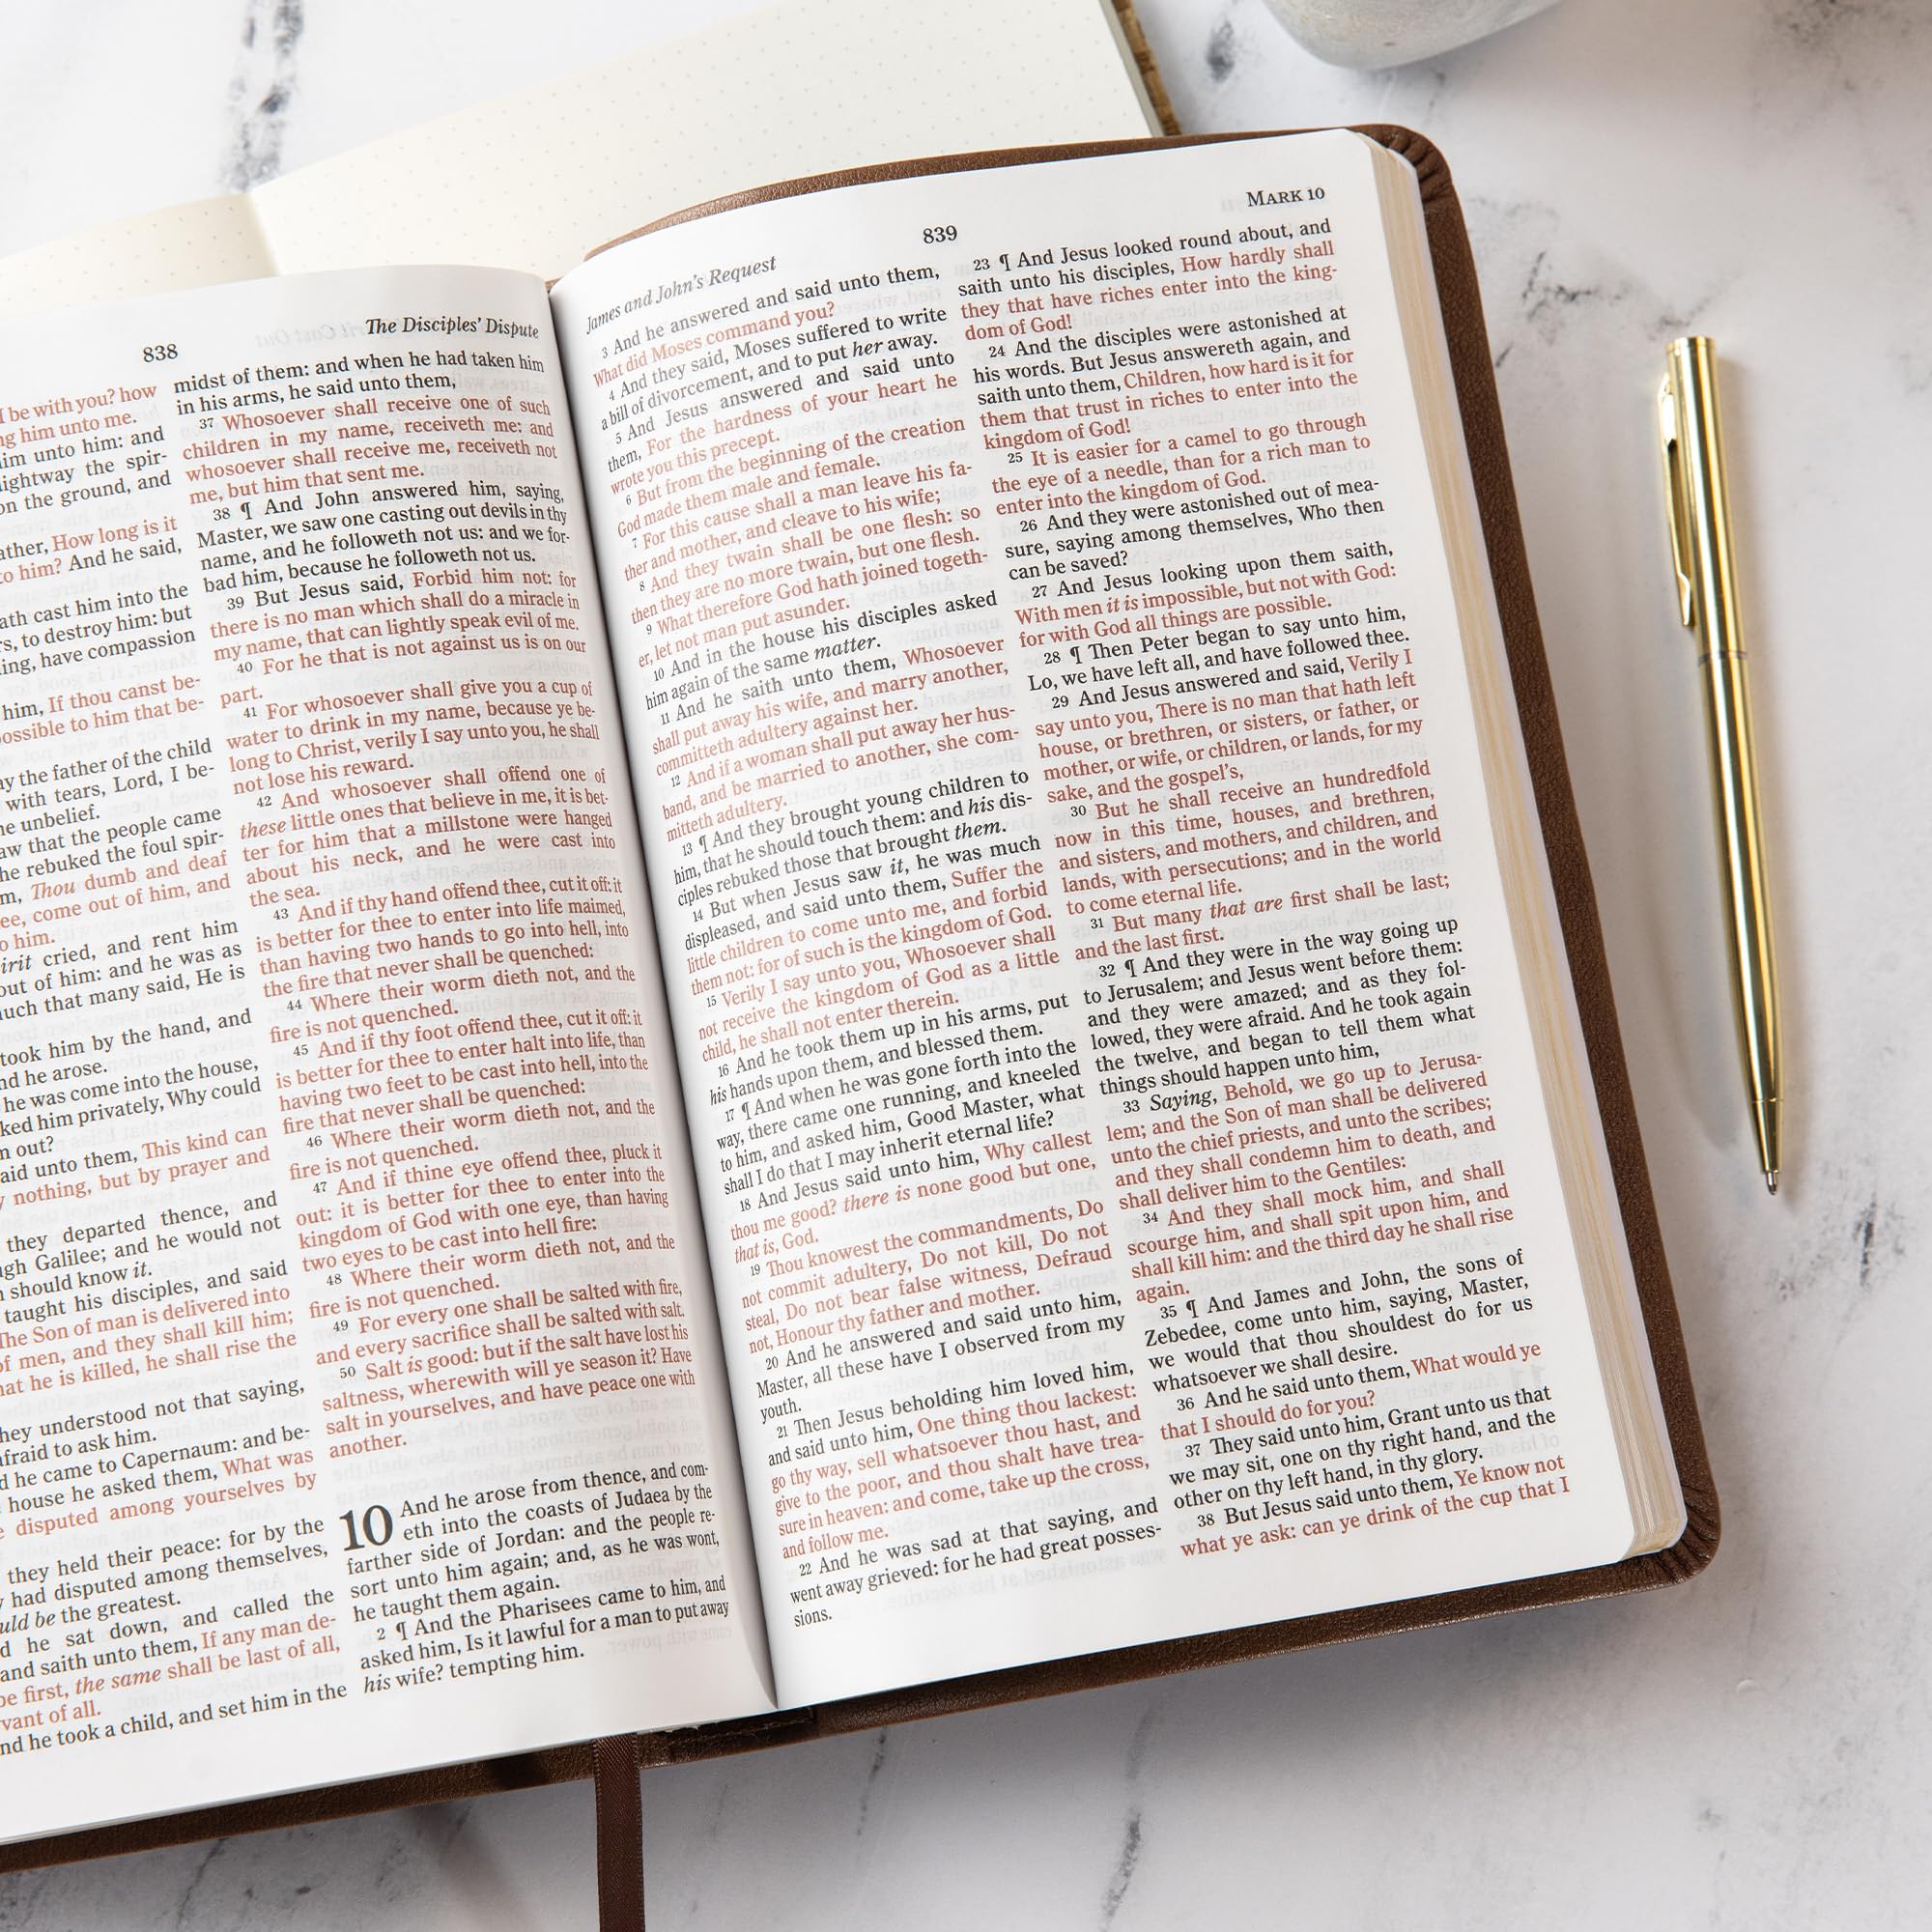 838
The Disciples' Dispute
I be with you? how
ng him unto me.
im unto him: and
ightway the spir-
on the ground, and
ather, How long is it
to him? And he said,
ath cast him into the
rs, to destroy him: but
ing, have compassion
him, If thou canst be-
ossible to him that be-
ay the father of the child
with tears, Lord, I be-
ne unbelief.
aw that the people came
he rebuked the foul spir-
m, Thou dumb and deaf
ee, come out of him, and
o him.
irit cried, and rent him
out of him: and he was as
uch that many said, He is
took him by the hand, and
nd he arose.
he was come into the house,
ked him privately, Why could
m out?
aid unto them, This kind can
y nothing, but by prayer and
they departed thence, and
ugh Galilee; and he would not
n should know it.
taught his disciples, and said
The Son of man is delivered into
of men, and they shall kill him;
hat he is killed, he shall rise the
hey understood not that saying,
afraid to ask him.
d he came to Capernaum: and be-
house he asked them, What was
e disputed among yourselves by
they held their peace: for by the
y had disputed among themselves,
uld be the greatest.
d he sat down, and called the
and saith unto them, If any man de-
be first, the same shall be last of all,
rvant of all.
nd he took a child, and set him in the
midst of them: and when he had taken him
in his arms, he said unto them,
37 Whosoever shall receive one of such
children in my name, receiveth me: and
whosoever shall receive me, receiveth not
me, but him that sent me.
38 ¶ And John answered him, saying,
Master, we saw one casting out devils in thy
name, and he followeth not us: and we for-
bad him, because he followeth not us.
39 But Jesus said, Forbid him not: for
there is no man which shall do a miracle in
my name, that can lightly speak evil of me.
40 For he that is not against us is on our
part.
41 For whosoever shall give you a cup of
water to drink in my name, because ye be-
long to Christ, verily I say unto you, he shall
not lose his reward.
42 And whosoever shall offend one of
these little ones that believe in me, it is bet-
ter for him that a millstone were hanged
about his neck, and he were cast into
the sea.
43 And if thy hand offend thee, cut it off: it
is better for thee to enter into life maimed,
than having two hands to go into hell, into
the fire that never shall be quenched:
44 Where their worm dieth not, and the
fire is not quenched.
45 And if thy foot offend thee, cut it off: it
is better for thee to enter halt into life, than
having two feet to be cast into hell, into the
fire that never shall be quenched:
46 Where their worm dieth not, and the
fire is not quenched.
47 And if thine eye offend thee, pluck it
out: it is better for thee to enter into the
kingdom of God with one eye, than having
two eyes to be cast into hell fire:
48 Where their worm dieth not, and the
fire is not quenched.
49 For every one shall be salted with fire,
and every sacrifice shall be salted with salt.
50 Salt is good: but if the salt have lost his
saltness, wherewith will ye season it? Have
salt in yourselves, and have peace one with
another.
10 And he arose from thence, and com-
eth into the coasts of Judaea by the
farther side of Jordan: and the people re-
sort unto him again; and, as he was wont,
he taught them again.
2 ¶ And the Pharisees came to him, and
asked him, Is it lawful for a man to put away
his wife? tempting him.
James and John's Request
839
MARK 10
3 And he answered and said unto them,
What did Moses command you?
4 And they said, Moses suffered to write
a bill of divorcement, and to put her away.
5 And Jesus answered and said unto
them, For the hardness of your heart he
wrote you this precept.
6 But from the beginning of the creation
God made them male and female.
7 For this cause shall a man leave his fa-
ther and mother, and cleave to his wife;
8 And they twain shall be one flesh: so
then they are no more twain, but one flesh.
9 What therefore God hath joined togeth-
er, let not man put asunder.
10 And in the house his disciples asked
him again of the same matter.
11 And he saith unto them, Whosoever
shall put away his wife, and marry another,
committeth adultery against her.
12 And if a woman shall put away her hus-
band, and be married to another, she com-
mitteth adultery.
13 ¶ And they brought young children to
him, that he should touch them: and his dis-
ciples rebuked those that brought them.
14 But when Jesus saw it, he was much
displeased, and said unto them, Suffer the
little children to come unto me, and forbid
them not: for of such is the kingdom of God.
15 Verily I say unto you, Whosoever shall
not receive the kingdom of God as a little
child, he shall not enter therein.
16 And he took them up in his arms, put
his hands upon them, and blessed them.
17 ¶ And when he was gone forth into the
way, there came one running, and kneeled
to him, and asked him, Good Master, what
shall I do that I may inherit eternal life?
18 And Jesus said unto him, Why callest
thou me good? there is none good but one,
that is, God.
19 Thou knowest the commandments, Do
not commit adultery, Do not kill, Do not
steal, Do not bear false witness, Defraud
not, Honour thy father and mother.
20 And he answered and said unto him,
Master, all these have I observed from my
youth.
21 Then Jesus beholding him loved him,
and said unto him, One thing thou lackest:
go thy way, sell whatsoever thou hast, and
give to the poor, and thou shalt have trea-
sure in heaven: and come, take up the cross,
and follow me.
22 And he was sad at that saying, and
went away grieved: for he had great posses-
sions.
23 ¶ And Jesus looked round about, and
saith unto his disciples, How hardly shall
they that have riches enter into the king-
dom of God!
24 And the disciples were astonished at
his words. But Jesus answereth again, and
saith unto them, Children, how hard is it for
them that trust in riches to enter into the
kingdom of God!
25 It is easier for a camel to go through
the eye of a needle, than for a rich man to
enter into the kingdom of God.
26 And they were astonished out of mea-
sure, saying among themselves, Who then
can be saved?
27 And Jesus looking upon them saith,
With men it is impossible, but not with God:
for with God all things are possible.
28 ¶ Then Peter began to say unto him,
Lo, we have left all, and have followed thee.
29 And Jesus answered and said, Verily I
say unto you, There is no man that hath left
house, or brethren, or sisters, or father, or
mother, or wife, or children, or lands, for my
sake, and the gospel's,
30 But he shall receive an hundredfold
now in this time, houses, and brethren,
and sisters, and mothers, and children, and
lands, with persecutions; and in the world
to come eternal life.
31 But many that are first shall be last;
and the last first.
32 ¶ And they were in the way going up
to Jerusalem; and Jesus went before them:
and they were amazed; and as they fol-
lowed, they were afraid. And he took again
the twelve, and began to tell them what
things should happen unto him,
33 Saying, Behold, we go up to Jerusa-
lem; and the Son of man shall be delivered
unto the chief priests, and unto the scribes;
and they shall condemn him to death, and
shall deliver him to the Gentiles:
34 And they shall mock him, and shall
scourge him, and shall spit upon him, and
shall kill him: and the third day he shall rise
again.
35 ¶ And James and John, the sons of
Zebedee, come unto him, saying, Master,
we would that thou shouldest do for us
whatsoever we shall desire.
36 And he said unto them, What would ye
that I should do for you?
37 They said unto him, Grant unto us that
we may sit, one on thy right hand, and the
other on thy left hand, in thy glory.
38 But Jesus said unto them, Ye know not
what ye ask: can ye drink of the cup that I